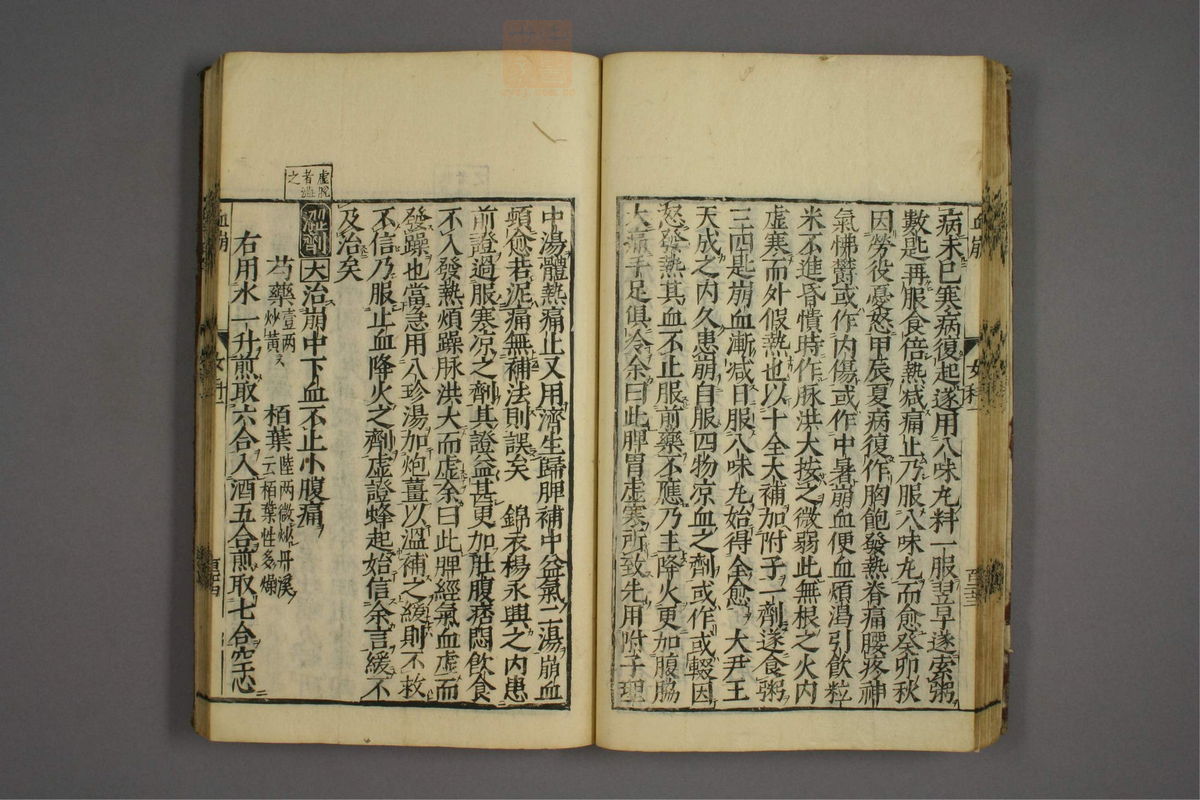 病未已寒病復起遂用八味丸料一服翌早遂索粥
數匙再服食倍熱減痛止乃服八味丸而愈癸卯秋
因勞役憂怒甲辰夏病復作胸飽發熱脊痛腰疼神
氣怫欝或作内傷或作中暑崩血便血煩渴引飲粒
米不進昏憒時作脉洪大按之微弱此無根之火内
虚寒而外假熱也以十全大補加附子一劑遂食粥
三四匙崩血漸减日服八味丸始得全愈 大尹王
天成之内久患崩自服四物凉血之劑或作或輟因
怒發熱其血不止服前藥不應乃主降火更加腹脇
大痛手足俱冷余曰此脾胃虚寒所致先用附子理
血崩
女科
百三三
中湯體熱痛止又用濟生歸脾補中益氣二湯崩血
頓愈若泥痛無補法則誤矣 錦衣楊永興之内患
前證過服寒凉之劑其證益甚更加肚腹痞悶飲食
不入發熱煩躁脉洪大而虚余曰此脾經氣血虚而
發躁也當急用八珍湯加炮薑以溫補之緩則不救
不信乃服止血降火之劑虚證蜂起始信余言緩不
及治矣
虚脱者澁之
澁劑 大治崩中下血不止小腹痛
芍藥 壹两炒黄 栢葉 陸两微炒丹溪云栢葉性多燥
右用水一升煎取六合入酒五合煎取七合空心
血崩
女科
百三四